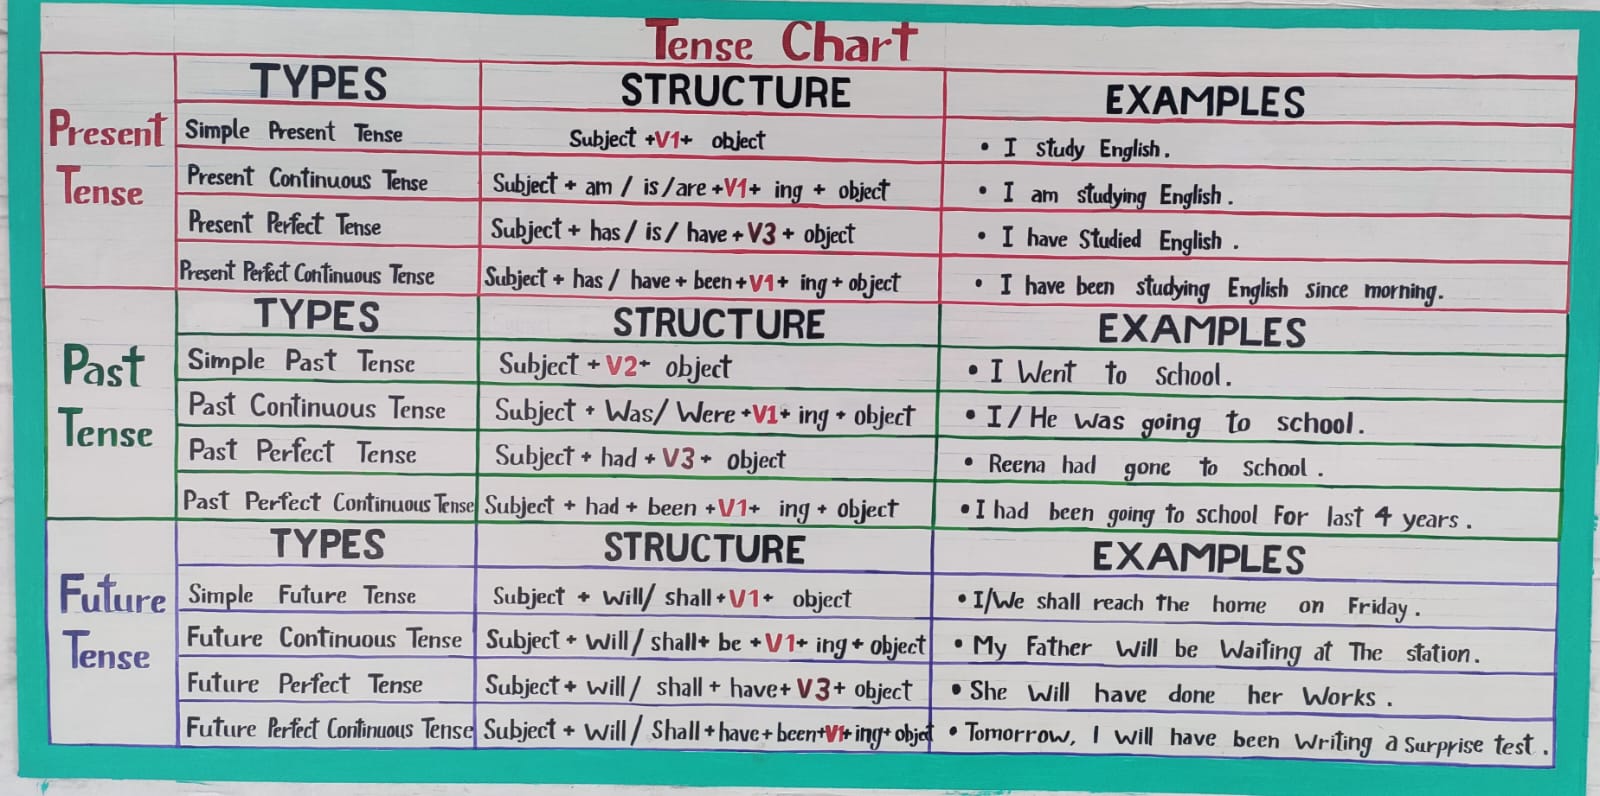 Tense Chart
TYPES STRUCTURE EXAMPLES
Present Tense
Simple Present Tense Subject +V1+ object • I study English.
Present Continuous Tense Subject + am / is /are +V1+ ing + object • I am studying English.
Present Perfect Tense Subject + has / is / have + V3 + object • I have Studied English.
Present Perfect Continuous Tense Subject + has / have + been +V1+ ing + object • I have been studying English since morning.
TYPES STRUCTURE EXAMPLES
Past Tense
Simple Past Tense Subject + V2+ object • I Went to school.
Past Continuous Tense Subject + Was/ Were +V1+ ing + object • I/He was going to school.
Past Perfect Tense Subject + had + V3 + object • Reena had gone to school.
Past Perfect Continuous Tense Subject + had + been +V1+ ing + object • I had been going to school For last 4 years.
TYPES STRUCTURE EXAMPLES
Future Tense
Simple Future Tense Subject + will/ shall +V1+ object • I/We shall reach the home on Friday.
Future Continuous Tense Subject + will/ shall+ be +V1+ ing + object • My Father will be Waiting at The station.
Future Perfect Tense Subject + will/ shall + have+ V3+ object • She will have done her Works.
Future Perfect Continuous Tense Subject + will/ Shall +have + been+V1+ ing+ object • Tomorrow, I will have been Writing a Surprise test.